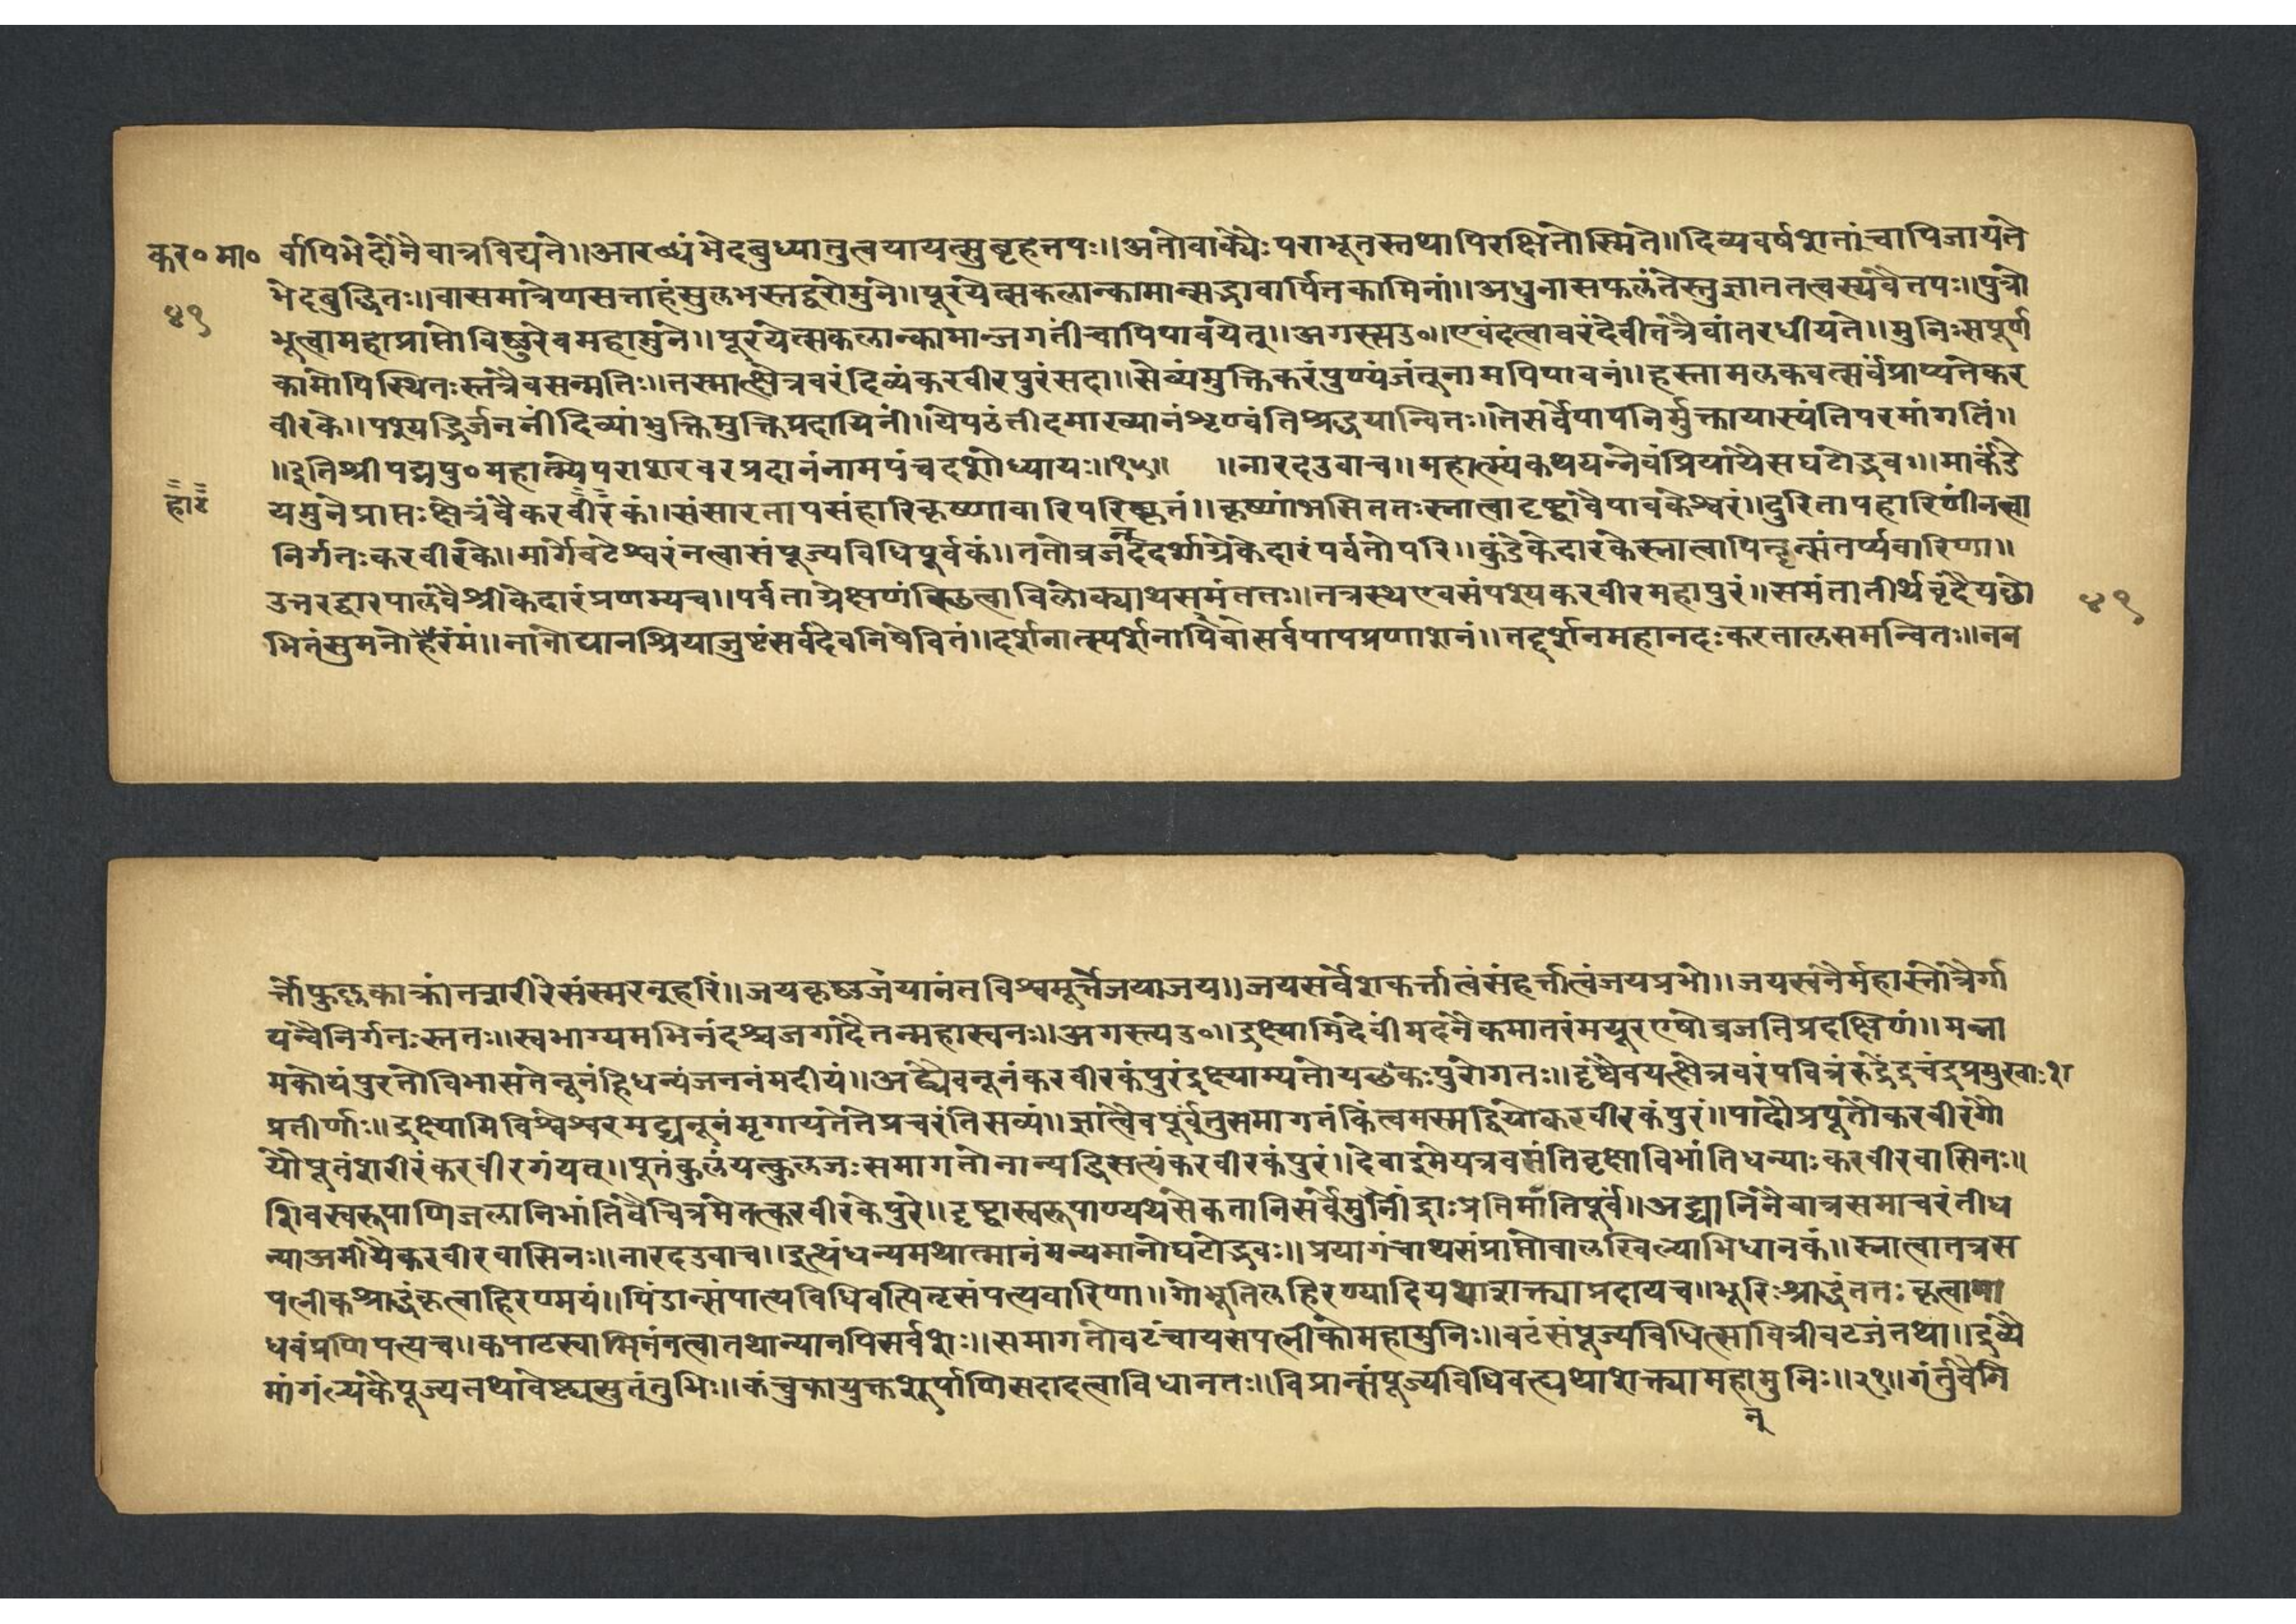 कर॰मा॰ र्वापिभेदोनैवात्रविद्यते।।आरण्यंभेदबुध्यातुत्वयायत्सुबृहत्तपः।।अतोवाक्यैःपराभूतस्तथापिरक्षितोस्मिते।।दिव्यवर्षशतांचापिजायंते
४१ भेदबुद्धितः।।वासमात्रेणसत्ताहंसुलभस्तद्वरोमुने।।पूरयेत्सकलान्कामान्सद्भावार्पितकामिनां।।अधुनासफलंतेस्तुज्ञानतत्वस्यवैतपः।।पुत्रो
भूत्वामहाप्राप्तोविष्णुरेवमहामुने।।पूरयेत्सकलान्कामान्जगतींचापिपावयेत्।।अगस्त्यउ॰।।एवंदत्वावरंदेवीतत्रैवांतरधीयते।।मुनिःसपूर्ण
कामोपिस्थितःस्तत्रैवसन्मतिः।।तस्मात्क्षेत्रवरंदिव्यंकरवीरपुरंसदा।।सेव्यंमुक्तिकरंपुण्यंजंतूनामपिपावनं।।हस्तामलकवत्सर्वंप्राप्यतेकर
वीरके।।पश्यद्भिर्जननींदिव्यांभुक्तिमुक्तिप्रदायिनीं।।येपठंतीदमाख्यानंशृण्वंतिश्रद्धयान्वितः।।तेसर्वेपापनिर्मुक्तायास्यंतिपरमांगतिं।।
।।इतिश्रीपद्मपु॰महात्म्येपराशरवरप्रदानंनामपंचदशोध्यायः।।१५।। ।।नारदउवाच।।महात्म्यंकथयन्नेवंप्रियायैसघटोद्भवः।।मार्कंडे
हाट यमुनेप्राप्तःक्षेत्रंवैकरवीरकं।।संसारतापसंहारिकृष्णावारिपरिष्कृतं।।कृष्णांभसिततःस्नात्वादृष्ट्वावैपावकेश्वरं।।दुरितापहारिणींनत्वा
निर्गतःकरवीरके।।मार्गेवटेश्वरंनत्वासंपूज्यविधिपूर्वकं।।ततोव्रजन्ददर्शाग्रेकेदारंपर्वतोपरि।।कुंडेकेदारकेस्नात्वापितॄन्संतर्प्यवारिणा।।
उत्तरद्वारपालंवैश्रीकेदारंप्रणम्यच।।पर्वताग्रेक्षणंस्थित्वाविलोक्याथसमंततः।।तत्रस्थएवसंपश्यकरवीरमहापुरं।।समंतातीर्थवृंदैयछो ४१
भितंसुमनोहरंमं।।नानोद्यानश्रियाजुष्टंसर्वदेवनिषेवितं।।दर्शनात्स्पर्शनापिवासर्वपापप्रणाशनं।।तद्दर्शनमहानदःकरतालसमन्वितः।।नन
र्त्तोफुल्लकाक्तांतत्रारीरेसंस्मरन्हरिं।।जयकृष्णजयानंतविश्वमूर्त्तेजयाजय।।जयसर्वेशकर्त्तात्वंसंहर्त्तात्वंजयप्रभो।।जयस्वनैर्महास्तोत्रैर्गा
यन्वैनिर्गतःस्ततः।।स्वभाग्यमभिनंदश्चजगादैतन्महास्वनः।।अगस्त्यउ॰।।द्रक्ष्यामिदेवींमदनैकमातरंमयूरएषोव्रजतिप्रदक्षिणं।।मत्ता
मकोयंपुरतोविभासतेनूनंहिधन्यंजननंमदीयं।।अद्यैवनूनंकरवीरकंपुरंद्रक्ष्याम्यतोयछकःपुरोगतः।।दृष्ट्वैवयत्क्षेत्रवरंपवित्रंरुद्रेंद्रचंद्रप्रमुखाःश
प्रतीर्णाः।।द्रक्ष्यामिविश्वेश्वरमद्यनूनंमृगायतेतेप्रचरंतिसव्यं।।ज्ञात्वैवपूर्वंतुसमागतंकिंत्वमस्मद्धियोकरवीरकंपुरं।।पादौप्रपूतौकरवीरगौ
यौपूतंशरीरंकरवीरगंयत्।।पूतंकुलंयत्कुलजःसमागतोनान्यद्धिसत्यंकरवीरकंपुरं।।देवाद्रुमेयत्रवसंतिवृक्षाविभांतिधन्याःकरवीरवासिनः।।
शिवस्वरूपाणिजलानिभांतिवैचित्रमेतत्करवीरकेपुरे।।दृष्ट्वास्वरूपाण्यथसैकतानिसर्वेमुनींद्राःप्रतिमांतिपूर्वं।।अद्यानिनैवात्रसमाचरंतीध
न्याअमीयेकरवीरवासिनः।।नारदउवाच।।इत्थंधन्यमथात्मानंमन्यमानोघटोद्भवः।।प्रयागंचाथसंप्राप्तोवालखिल्याभिधानकं।।स्नात्वातत्रस
पत्नीकश्राद्धंकृत्वाहिरण्मयं।।पिंडान्संपात्यविधिवत्पितृसंपत्यवारिणा।।गोभूतिलहिरण्यादियथाशक्त्याप्रदायच।।भूरिःश्राद्धंततःकृत्वामा
धवंप्रणिपत्यच।।कपाटस्वामिनंनत्वातथान्यानपिसर्वशः।।समागतोवटंचायसपत्नीकोमहामुनिः।।वटंसंपूज्यविधित्सावित्रीवटजंतथा।।द्रव्यै
मांगल्यकैपूज्यतथावेष्ट्यसुतंतुभिः।।कंचुकायुक्तशूर्पाणिसदादत्वाविधानतः।।विप्रान्संपूज्यविधिवत्द्यथाशक्त्यामहामुनिः।।२१।।गंतुंवैनि
नु